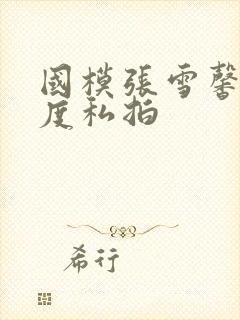 國模張雪馨
度私拍
希行